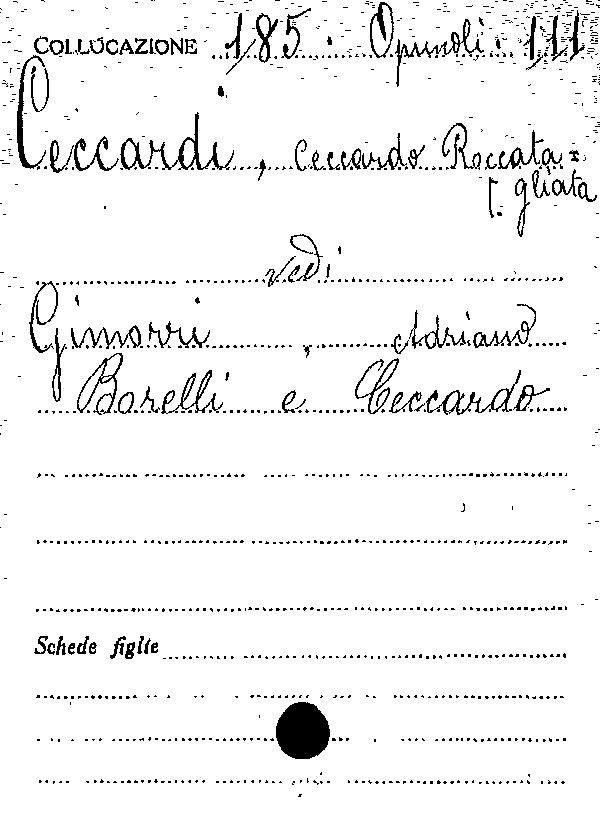 COLLOCAZIONE 185. Opuscoli. 111
Ceccardi, Ceccardo Roccata=
gliata
vedi
Gimorri, Adriano
Borelli e Ceccardo
Schede figlie